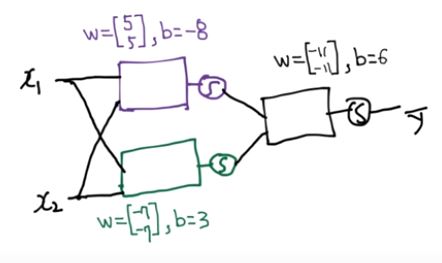 w=[5 5], b=-8
w=[-11 -11], b=6
x₁
S
S
S
ȳ
x₂
w=[-7 -7], b=3